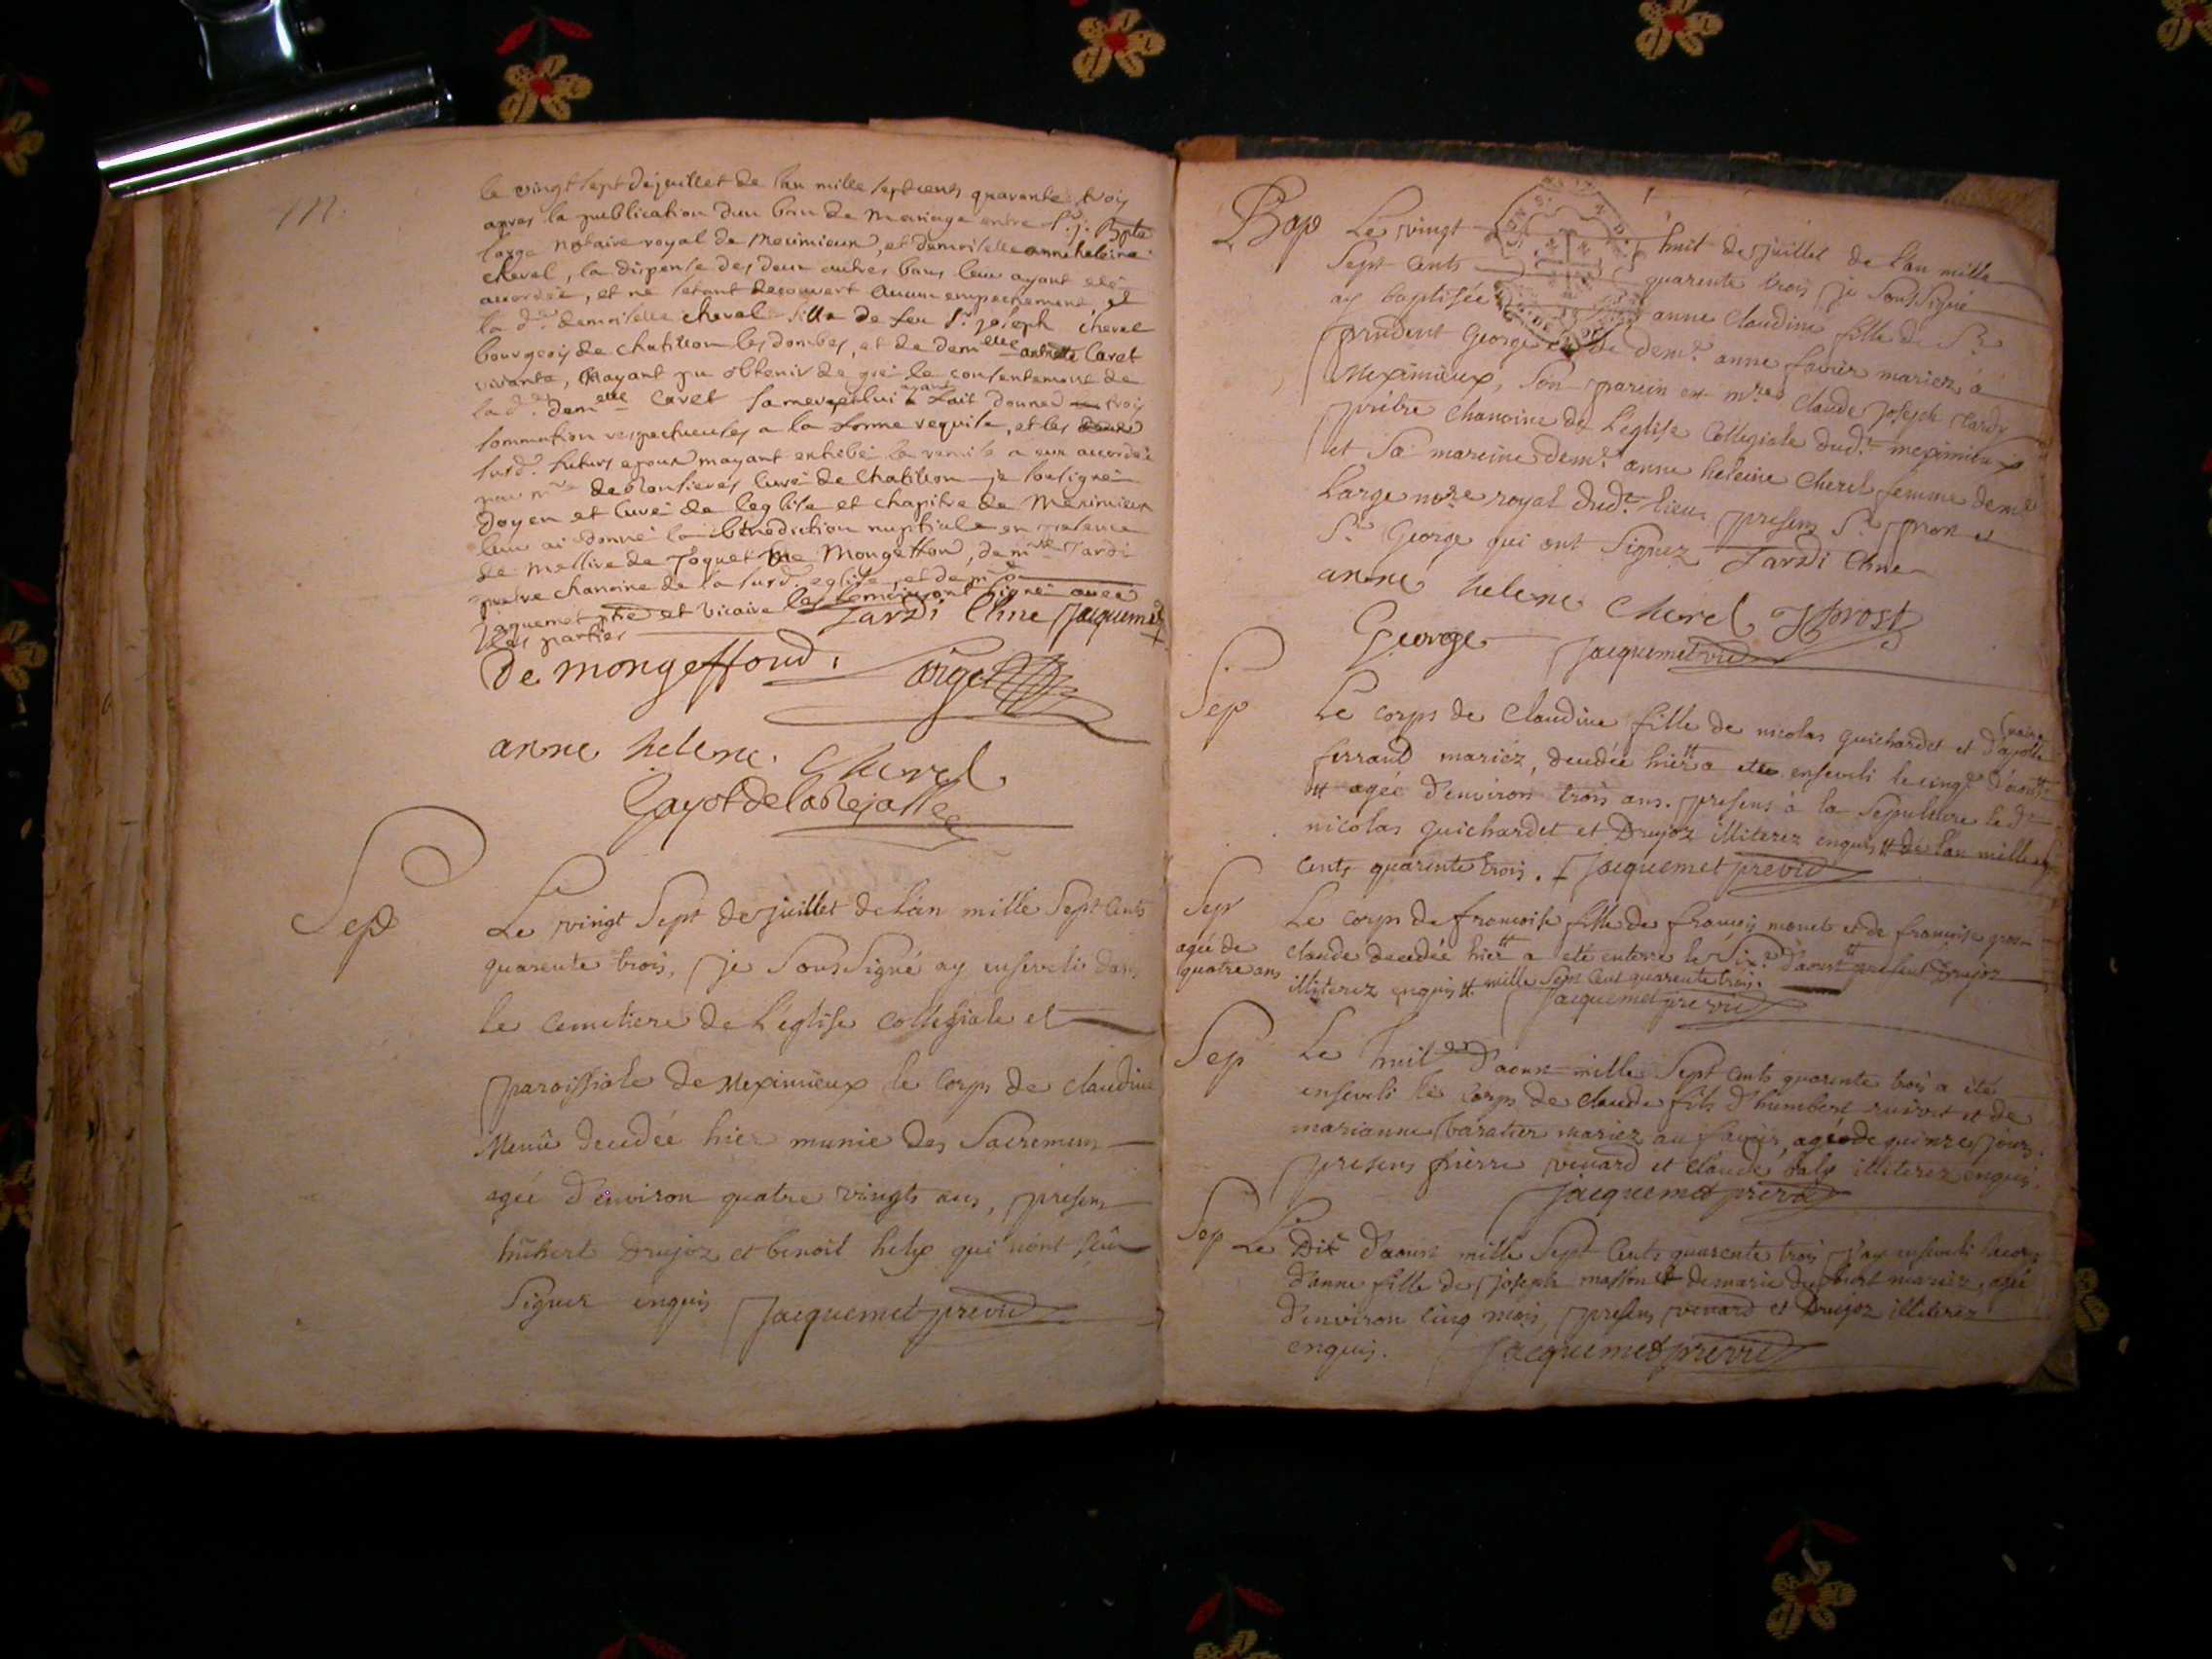 M.
le vingt sept de juillet de l'an mille sept cents quarante trois
apres la publication d'un ban de Mariage entre Sr. j. Bpte
large notaire royal de Meximieux, et demoiselle anne heleine
cheval, la dispense des deux autres bans leur ayant eté
accordée, et ne s'etant decouvert aucun empechement, et
la de. demoiselle cheval fille de feu Sr. joseph cheval
bourgeois de chatillon les dombes, et de demelle Cavet
vivante, n'ayant pu obtenir de grei le consentement de
la de. demelle Cavet sa mere, et lui ayant fait donner trois
sommation respectueuses a la forme requise, et les
susd. futurs epoux mayant exhibé la remise a eux accordée
par mre curé de Chatillon je sousigné
Doyen et Curé de l'eglise et chapitre de Meximieux
leur ai donné la bénédiction nuptiale en presence
de Messire de Mongeffon, de mre Tardi
pretre chanoine de la susd. eglise, et de mre
Jaquemet ptre et vicaire les temoins ont signé avec
les parties
Tardi Chne Jacquemet
De mongeffond. Large
anne helene. Cherel
Gayot de la Rejasse
Sep
Le vingt Sept de juillet de L'an mille Sept Cents
quarente trois, je Sous Signé ay enseveli dans
le cemetiere de L'eglise Collegiale et
paroissiale de Meximieux le Corps de claudine
Menu decedée hier munie des Sacremens
agée d'environ quatre vingts ans, presens
hubert Drujoz et benoit helix qui n'ont sçu
Signer enquis Jacquemet pre vic
Bap
Le vingt huit de juillet de L'an mille
Sept Cents quarente trois je Sous Signé
ay baptisée anne Claudine fille de Sr
prudent George et de deme. anne favier mariez à
Meximieux, Son parein est mre Claude joseph Tardy
prêtre Chanoine de L'eglise Collegiale dudt meximieux
et Sa mareine deme. anne heleine Cherel femme de mre
Large nore royal dudt lieu. presens Sr pron et
Sr George qui ont Signez Tardi Chne
anne helene Cherel Prost
George Jacquemet vic
Sep
Le corps de Claudine fille de nicolas guichardet et d'apolli
naire
ferrand mariéz, decedée hier a eté enseveli le cinqe d'aoust
agée d'environ trois ans. presens à la Sepulture le dt
nicolas guichardet et Drujoz illiterez enquis de l'an mille sept
Cents quarente trois. Jacquemet pre vic
Sep
agée de
quatre ans
Le corps de francoise fille de francois monet et de francoise
claude decedée hier a eté enterré le Six.e d'aoust present Drujoz
illiterez enquis mille Sept Cent quarente trois.
Jacquemet pre vic
Sep
Le huit d'aoust mille Sept Cents quarente trois a été
enseveli le Corps de Claude fils d'humbert ruivet et de
marianne baratier mariez au, agé de quinze jours.
presens pierre venard et claude illiterez enquis.
Jacquemet pre vic
Sep
Le Dix d'aoust mille Sept Cents quarente trois j'ay enseveli le corps
d'anne fille de joseph masson et de marie mariez, agée
d'environ Cinq mois, presens venard et Drujoz illiterez
enquis. Jacquemet pre vic